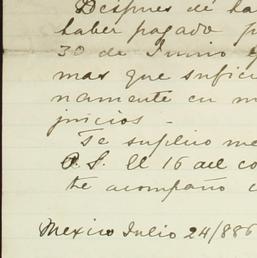 Despues de la
haber pagado p
30 de Junio y
mas que sufici
namente en m
juicios -
Te suplico me
P.S. El 16 del co
te acompaño c
Mexico Julio 24/886